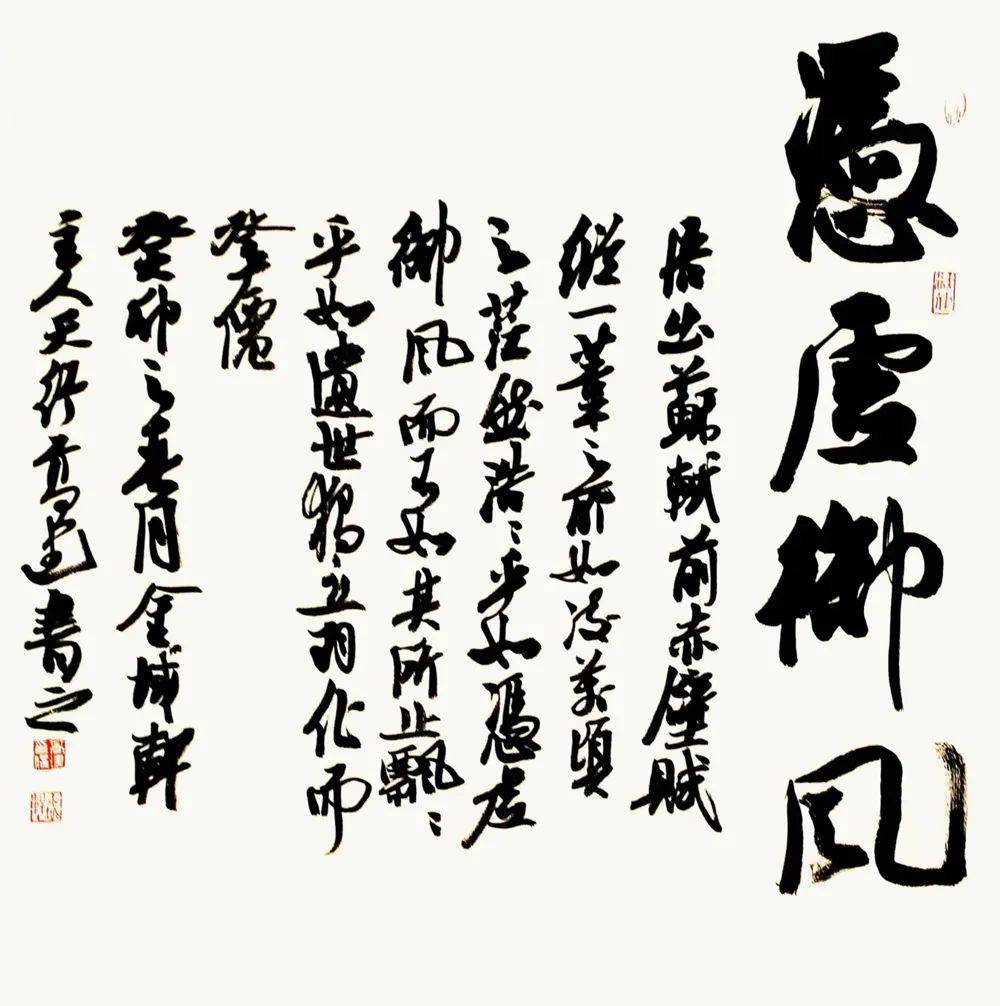 憑虛御風
語出蘇軾前赤壁賦
縱一葦之所如凌萬頃
之茫然浩〻乎如憑虛
御風而不知其所止飄〻
乎如遺世獨立羽化而
登僊
癸卯之春月金城軒
主人天行高書之